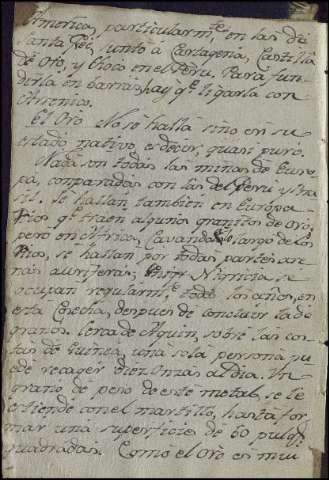 America, particularm.te en las de
Santa Feé, junto á Cartagena, Castilla
de Oro, y Choco en el Peru. Pará fun-
dirla en barras, hay q.e ligarla con
Arsenico.
El Oro No se halla sino en su
estado nativo, es decir, quasi puro.
Nada son todas las minas de Euro-
pa, comparadas con las del Peru y Bra-
sil. Se hallan tambien en Europa
Rios q.e traen algunos granitos de oro,
pero en Africa, Cavando lo largo de los
Rios, se hallan por todas partes are-
nas auriferas; Nigricia se
ocupan regularm.te todos los años, en
esta Cosecha, despues de concluir la de
granos. Cerca de Aquin, sobre las cos-
tas de Guinea, una sola persona pu-
ede recoger diez Onzas al Dia. Un
grano de peso de este metal, se le
estiende con el martillo, hasta for-
mar una superficie de 60 pulg.s
quadradas. Como el Oro es mui